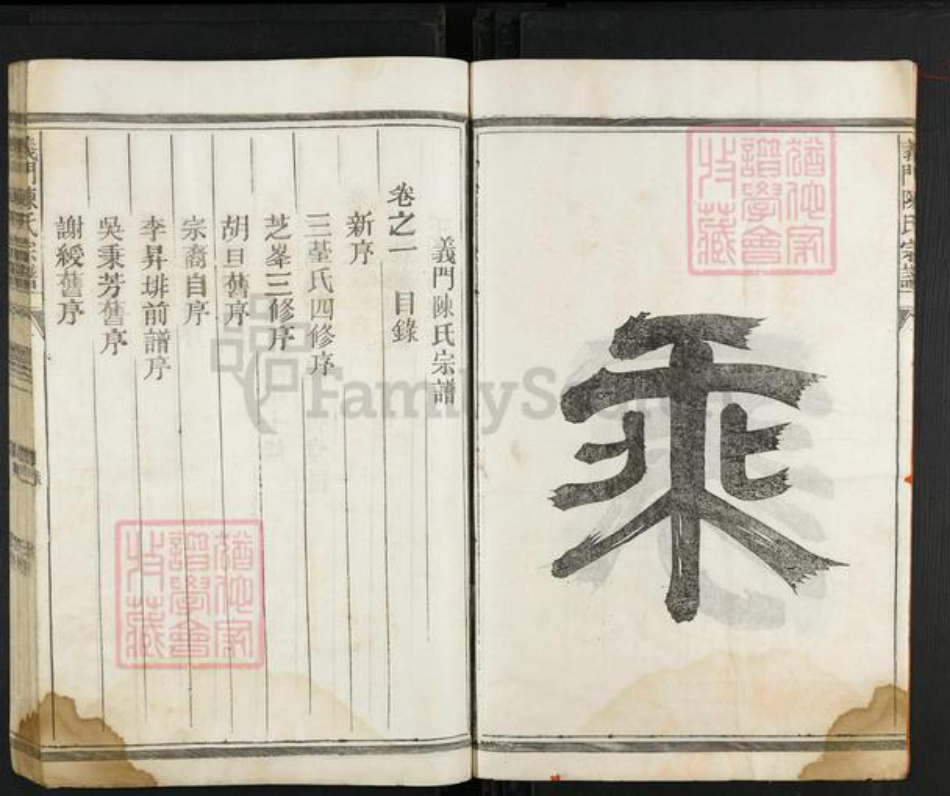 乘
義門陳氏宗譜
義門陳氏宗譜
卷之一 目錄
新序
三荃氏四修序
芝峯三修序
胡旦舊序
宗裔自序
李昇堪前譜序
吳秉芳舊序
謝綬舊序
義門陳氏宗譜
譜學會
收藏
譜學會
收藏
FamilySearch